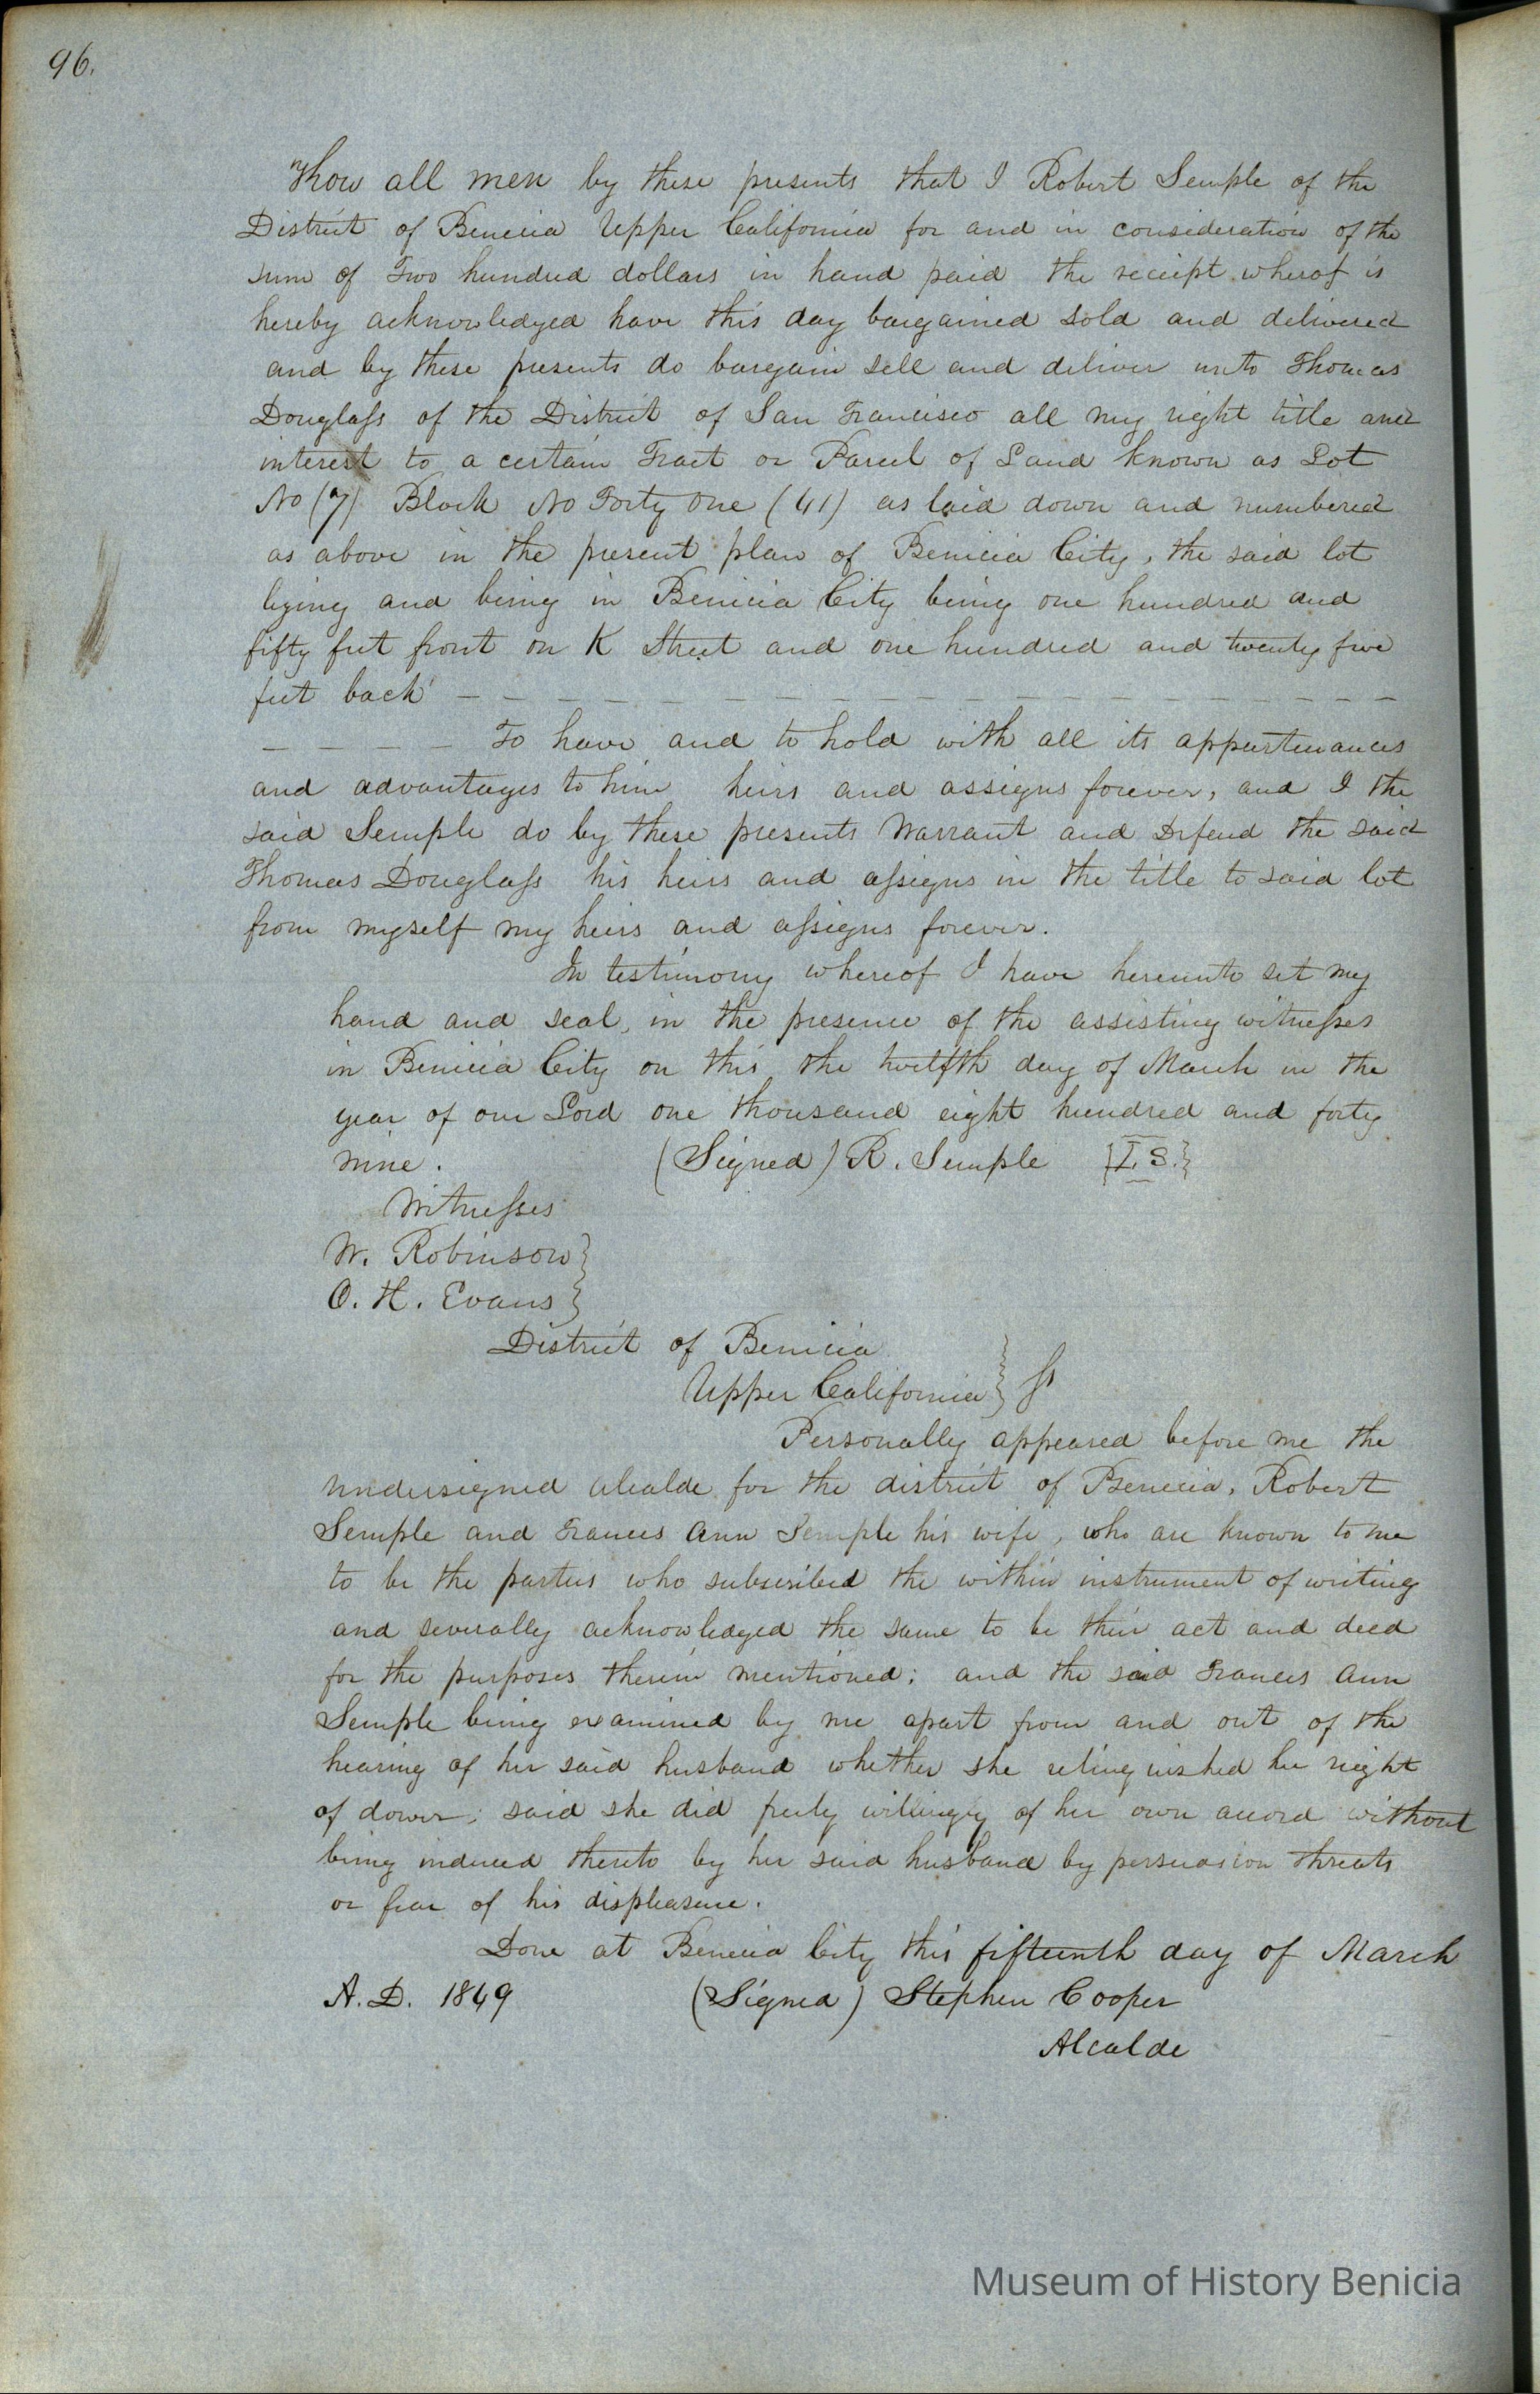 96.
Know all men by these presents that I Robert Semple of the
District of Benicia Upper California for and in consideration of the
sum of Two hundred dollars in hand paid the receipt wherof is
hereby acknowledged have this day bargained sold and delivered
and by these presents do bargain sell and deliver unto Thomas
Douglass of the District of San Francisco all my right title and
interest to a certain Tract or Parcel of Land known as Lot
No (7) Block No Forty one (41) as laid down and numbered
as above in the present plan of Benicia City, the said lot
lying and being in Benicia City being one hundred and
fifty feet front on K Street and one hundred and twenty five
feet back — — — — — — — — — — — — — — — — — — — —
— — — — — To have and to hold with all its appurtenances
and advantages to him heirs and assigns forever, and I the
said Semple do by these presents Warrant and Defend the said
Thomas Douglass his heirs and assigns in the title to said lot
from myself my heirs and assigns forever.
In testimony whereof I have hereunto set my
hand and seal, in the presence of the assisting witnesses
in Benicia City on this the twelfth day of March in the
year of our Lord one thousand eight hundred and forty
nine. (Signed) R. Semple {L.S.}
Witnesses
W. Robinson}
O. H. Evans}
District of Benicia
Upper California} ss
Personally appeared before me the
undersigned alcalde for the district of Benicia, Robert
Semple and Frances Ann Semple his wife, who are known to me
to be the parties who subscribed the within instrument of writing
and severally acknowledged the same to be their act and deed
for the purposes therein mentioned; and the said Frances Ann
Semple being examined by me apart from and out of the
hearing of her said husband whether she relinquished her right
of dower, said she did freely willingly of her own accord without
being induced thereto by her said husband by persuasion threats
or fear of his displeasure.
Done at Benicia City this fifteenth day of March
A.D. 1849 (Signed) Stephen Cooper
Alcalde
Museum of History Benicia